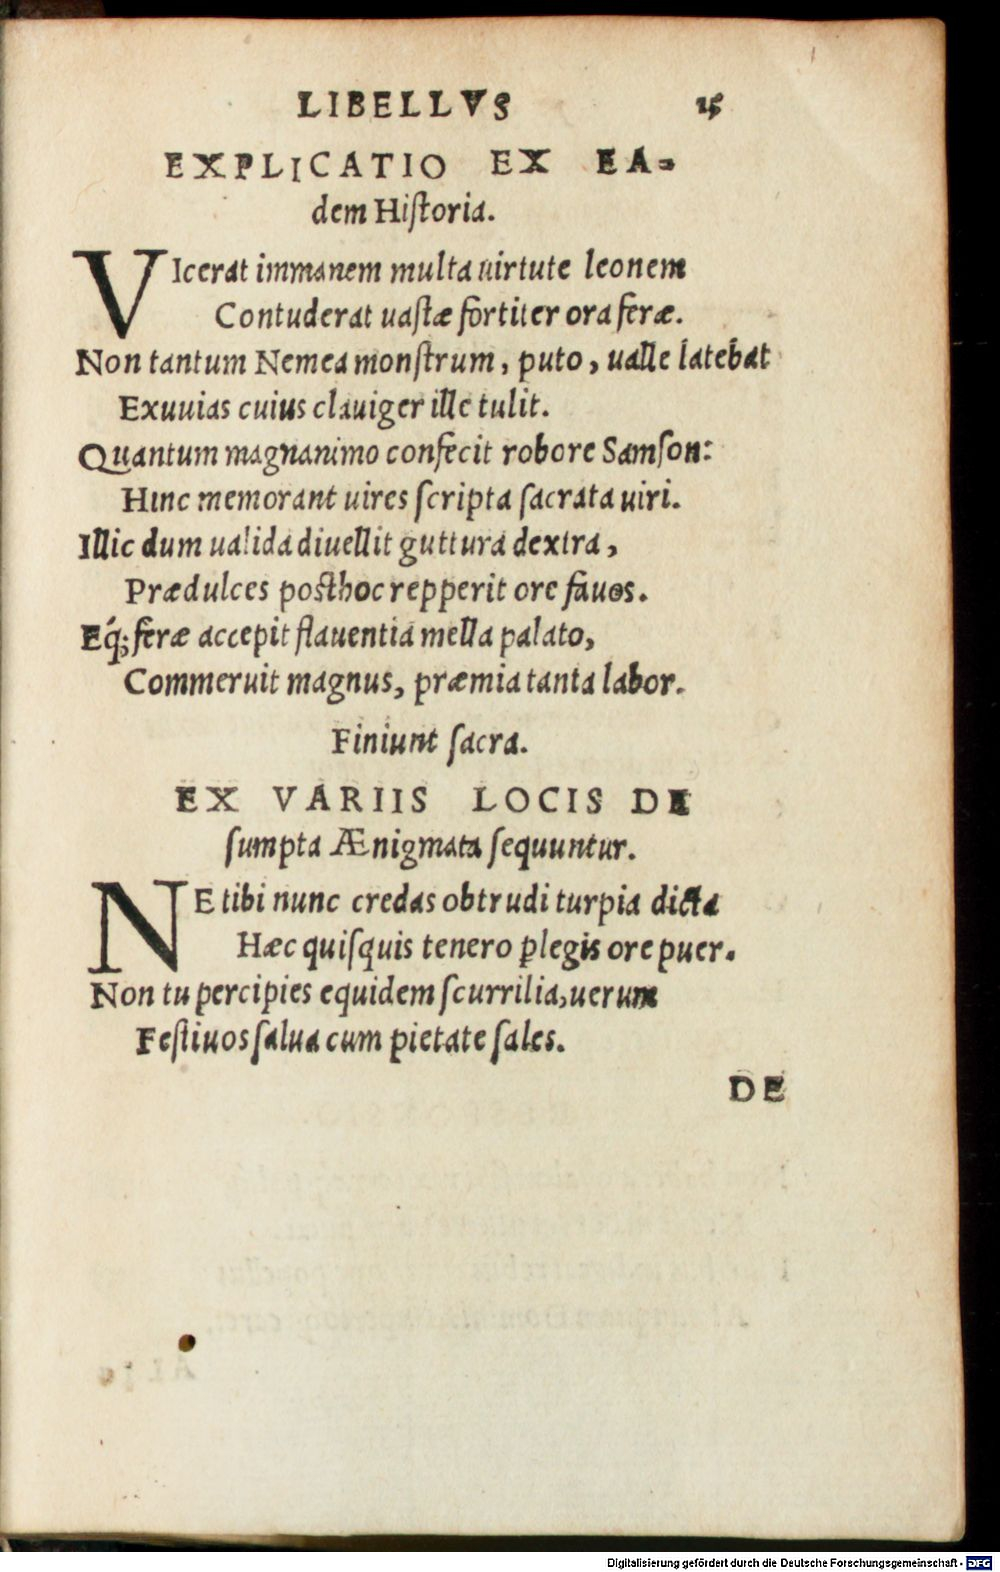 LIBELLVS 15
EXPLICATIO EX EA-
dem Hiſtoria.
VIcerat immanem multa uirtute leonem
Contuderat uaſtæ fortiter ora feræ.
Non tantum Nemea monſtrum, puto, ualle latebat
Exuuias cuius clauiger ille tulit.
Quantum magnanimo confecit robore Samſon:
Hinc memorant uires ſcripta ſacrata uiri.
Illic dum ualida diuellit guttura dextra,
Prædulces poſthoc repperit ore fauos.
Eq́; feræ accepit flauentia mella palato,
Commeruit magnus, præmia tanta labor.
Finiunt ſacra.
EX VARIIS LOCIS DE
ſumpta Ænigmata ſequuntur.
NE tibi nunc credas obtrudi turpia dicta
Hæc quiſquis tenero ꝑlegis ore puer.
Non tu percipies equidem ſcurrilia, uerum
Feſtiuos ſalua cum pietate ſales.
DE
Digitalisierung gefördert durch die Deutsche Forschungsgemeinschaft - DFG